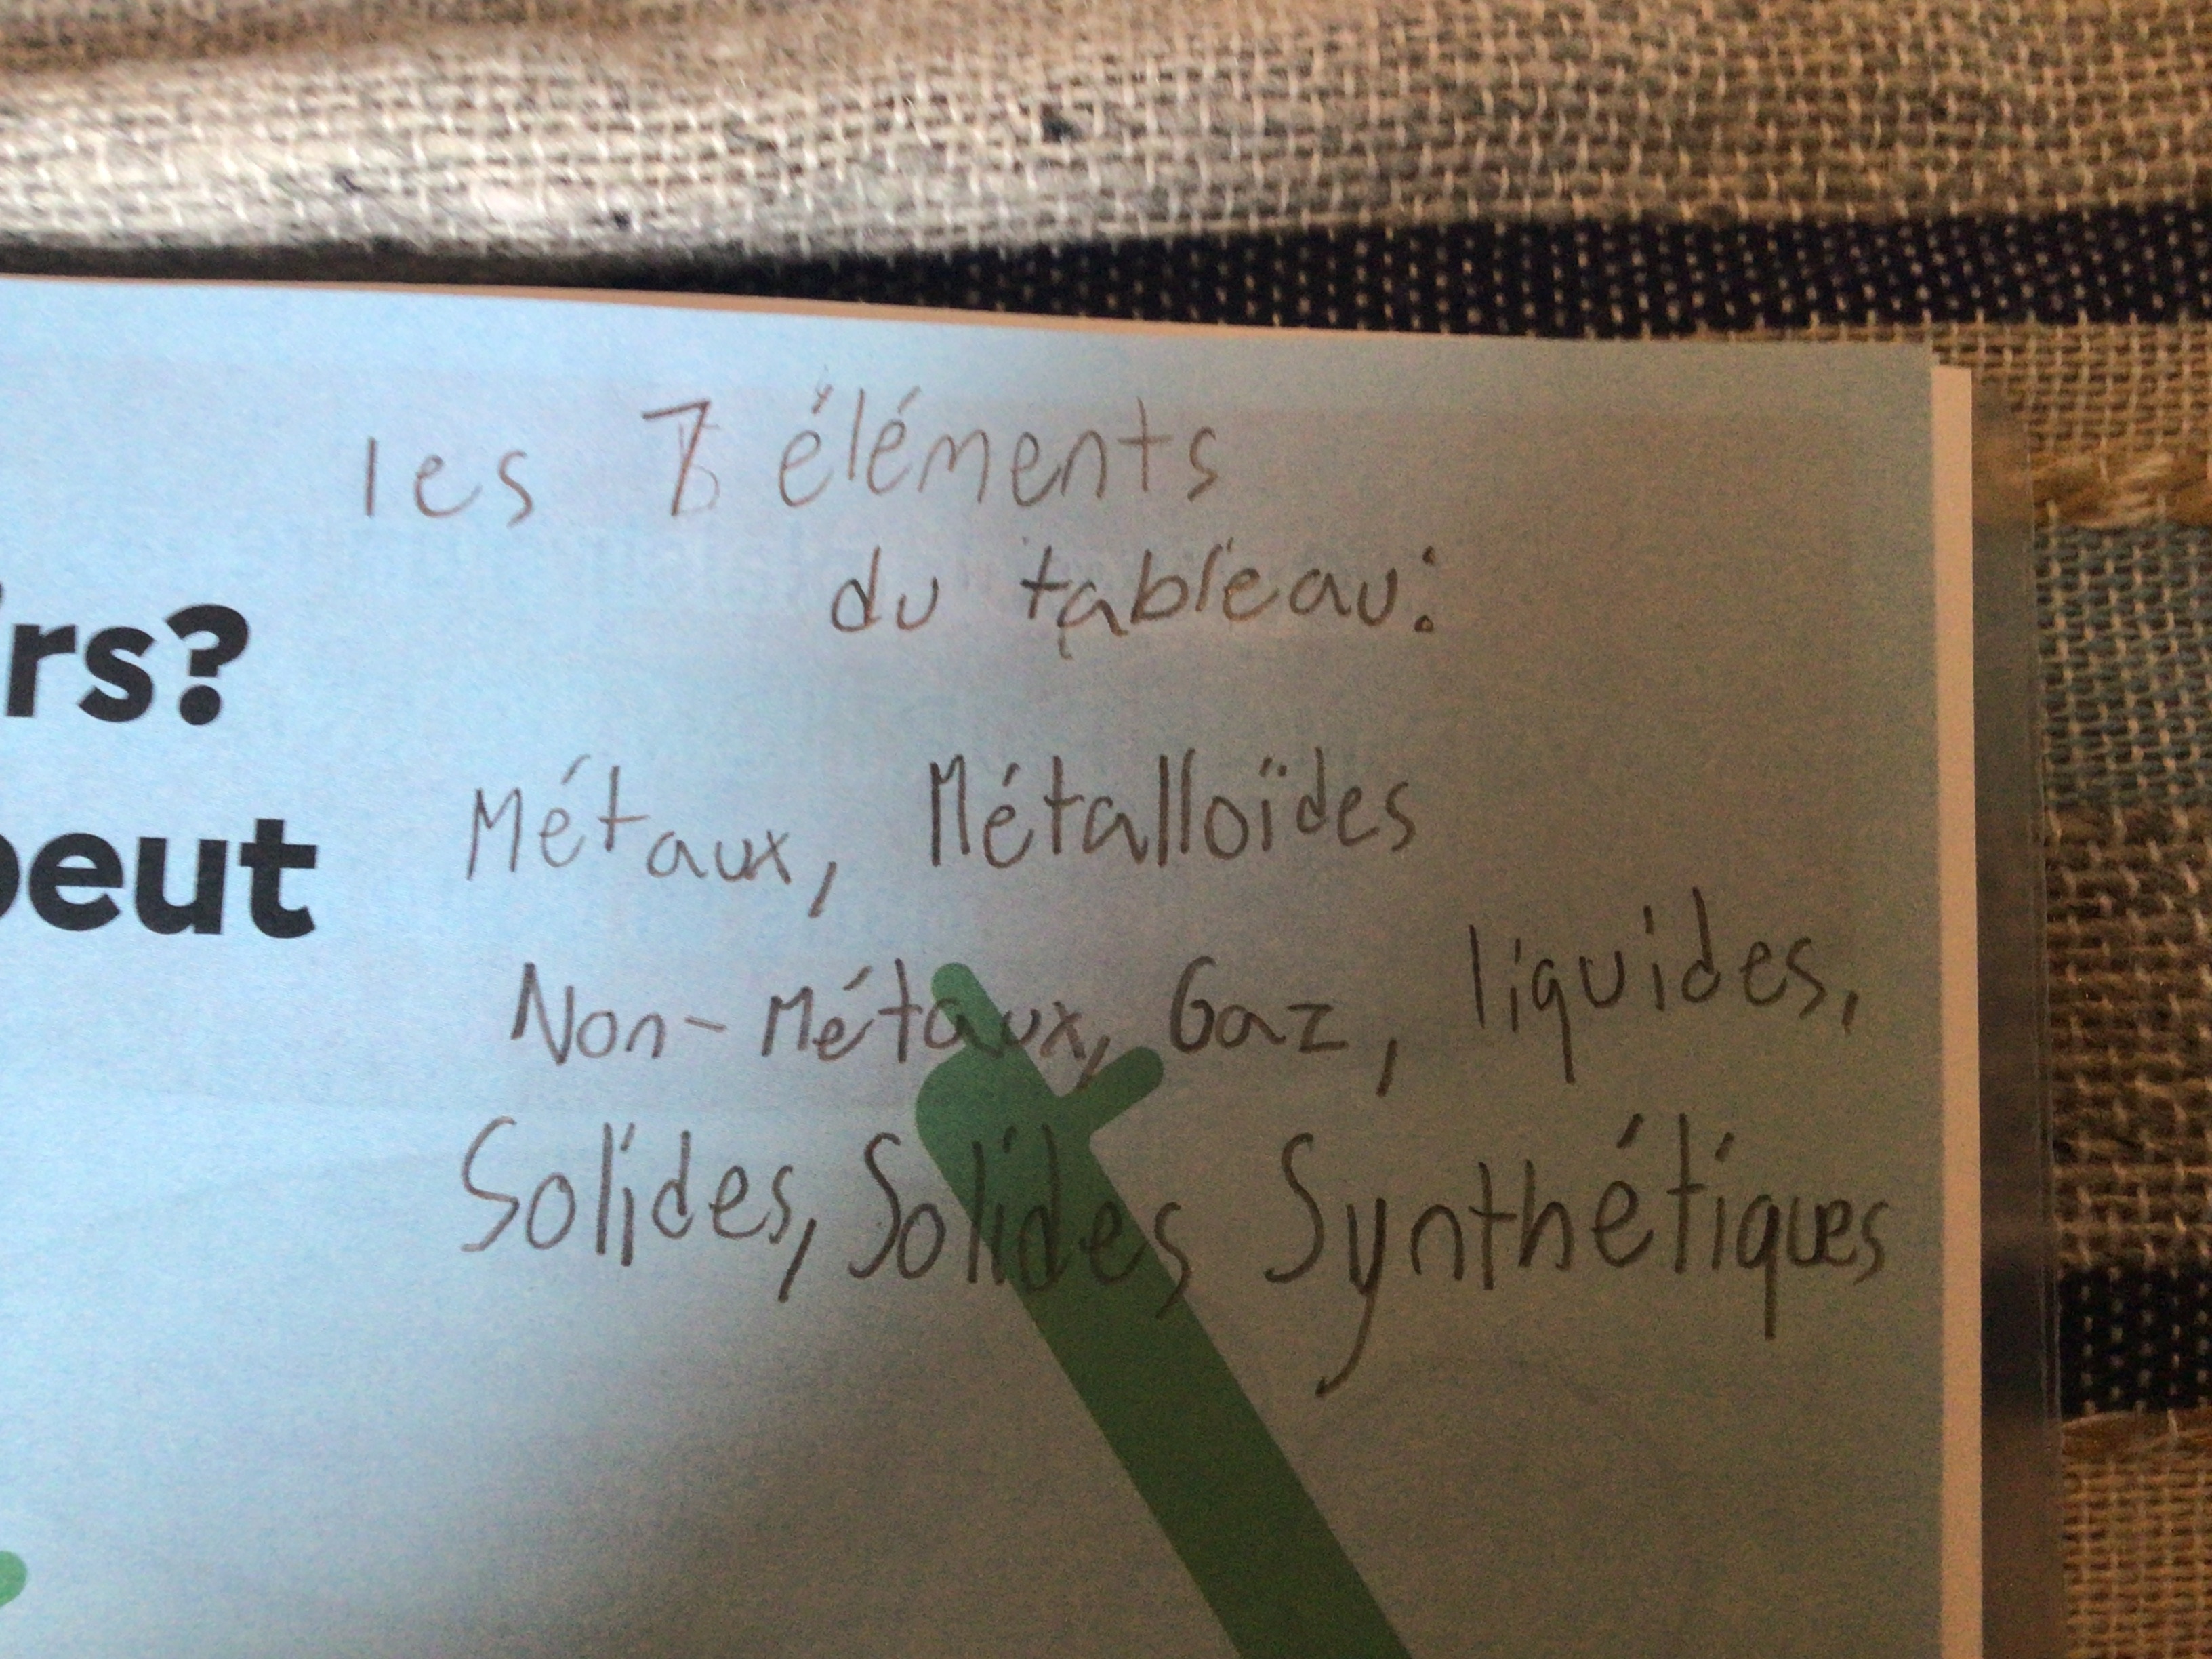 les 7 éléments
du tableau:
rs?
Métaux, Métalloïdes
peut
Non-Métaux, Gaz, liquides,
Solides, Solides Synthétiques